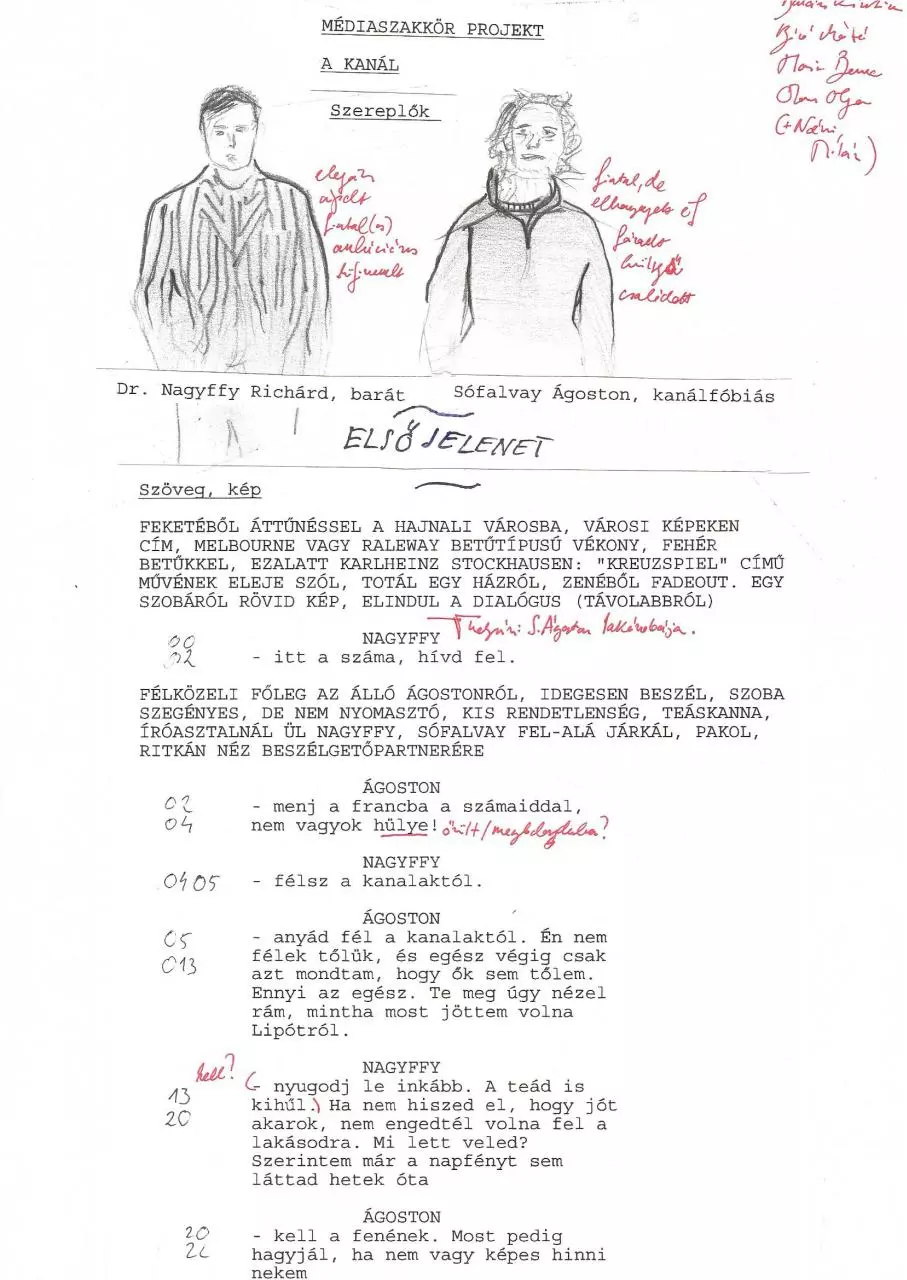 MÉDIASZAKKÖR PROJEKT
A KANÁL
Szereplők
Biró Máté
(+Náni,
Milán)
fiatal(os)
ambiciózus
fiatal, de
fáradt
csalódott
Dr. Nagyffy Richárd, barát
Sófalvay Ágoston, kanálfóbiás
ELSŐ JELENET
Szöveg, kép
FEKETÉBŐL ÁTTŰNÉSSEL A HAJNALI VÁROSBA, VÁROSI KÉPEKEN
CÍM, MELBOURNE VAGY RALEWAY BETŰTÍPUSÚ VÉKONY, FEHÉR
BETŰKKEL, EZALATT KARLHEINZ STOCKHAUSEN: "KREUZSPIEL" CÍMŰ
MŰVÉNEK ELEJE SZÓL, TOTÁL EGY HÁZRÓL, ZENÉBŐL FADEOUT. EGY
SZOBÁRÓL RÖVID KÉP, ELINDUL A DIALÓGUS (TÁVOLABBRÓL)
helyszín: S. Ágoston lakószobája.
NAGYFFY
00
02
- itt a száma, hívd fel.
FÉLKÖZELI FŐLEG AZ ÁLLÓ ÁGOSTONRÓL, IDEGESEN BESZÉL, SZOBA
SZEGÉNYES, DE NEM NYOMASZTÓ, KIS RENDETLENSÉG, TEÁSKANNA,
ÍRÓASZTALNÁL ÜL NAGYFFY, SÓFALVAY FEL-ALÁ JÁRKÁL, PAKOL,
RITKÁN NÉZ BESZÉLGETŐPARTNERÉRE
ÁGOSTON
02
04
- menj a francba a számaiddal,
nem vagyok hülye! őrült/megbolondulva?
NAGYFFY
04 05
- félsz a kanalaktól.
ÁGOSTON
05
013
- anyád fél a kanalaktól. Én nem
félek tőlük, és egész végig csak
azt mondtam, hogy ők sem tőlem.
Ennyi az egész. Te meg úgy nézel
rám, mintha most jöttem volna
Lipótról.
NAGYFFY
kell?
13
20
(- nyugodj le inkább. A teád is
kihűl.) Ha nem hiszed el, hogy jót
akarok, nem engedtél volna fel a
lakásodra. Mi lett veled?
Szerintem már a napfényt sem
láttad hetek óta
ÁGOSTON
20
22
- kell a fenének. Most pedig
hagyjál, ha nem vagy képes hinni
nekem